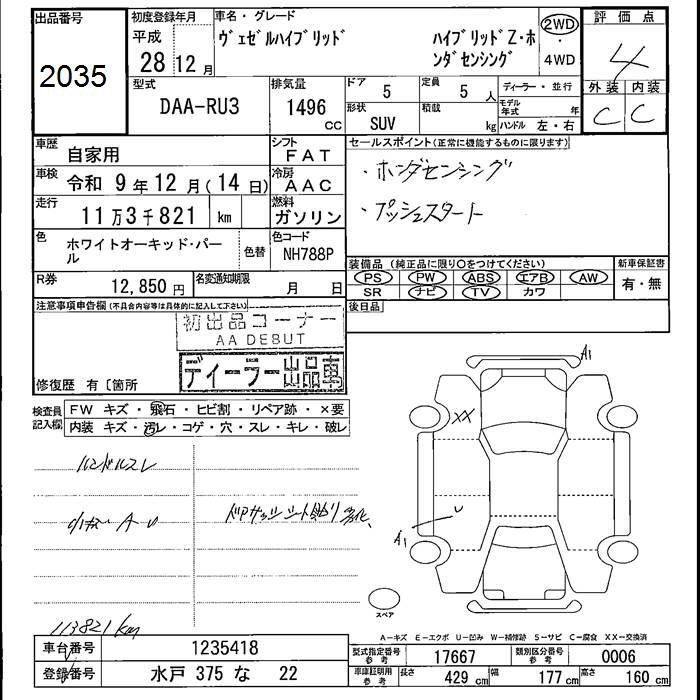 出品番号
2035
初度登録年月
平成
28 12月
車名・グレード
ヴェゼルハイブリッド
ハイブリッドZ・ホンダセンシング
2WD
・
4WD
評価点
4
外装 内装
C C
型式
DAA-RU3
排気量
1496
cc
ドア
5
定員
5 人
形状
SUV
積載
kg
ディーラー・並行
モデル年式 年
ハンドル 左・右
車歴
自家用
シフト
FAT
車検
令和 9年12月(14日)
冷房
AAC
走行
11万3千821 km
燃料
ガソリン
色
ホワイトオーキッド・パール
色替
色コード
NH788P
R券
12,850円
名変通知期限
月 日
セールスポイント(正常に機能するものに限ります)
・ホンダセンシング
・プッシュスタート
装備品(純正品に限り○をつけてください)
PS PW ABS エアB AW
SR ナビ TV カワ
新車保証書
有・無
後日品
注意事項申告欄(不具合内容等は具体的に記入して下さい)
初出品コーナー
AA DEBUT
ディーラー出品車
修復歴 有〔箇所
検査員記入欄
FW キズ・飛石・ヒビ割・リペア跡・×要
内装 キズ・汚レ・コゲ・穴・スレ・キレ・破レ
ハンドルスレ
A-U
113821km
A1
XX
U
A1
スペア
A-キズ E-エクボ U-凹み W-補修跡 S-サビ C-腐食 XX-交換済
車台番号
1235418
登録番号
水戸 375 な 22
型式指定番号
参考
17667
類別区分番号
参考
0006
車庫証明用
参考
長さ
429 cm
幅
177 cm
高さ
160 cm